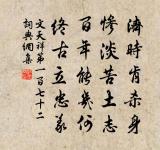 濟時肯杀身
慘淡苦士志
百年能幾何
終古立忠義
文天祥第一百七十二
詞典網集